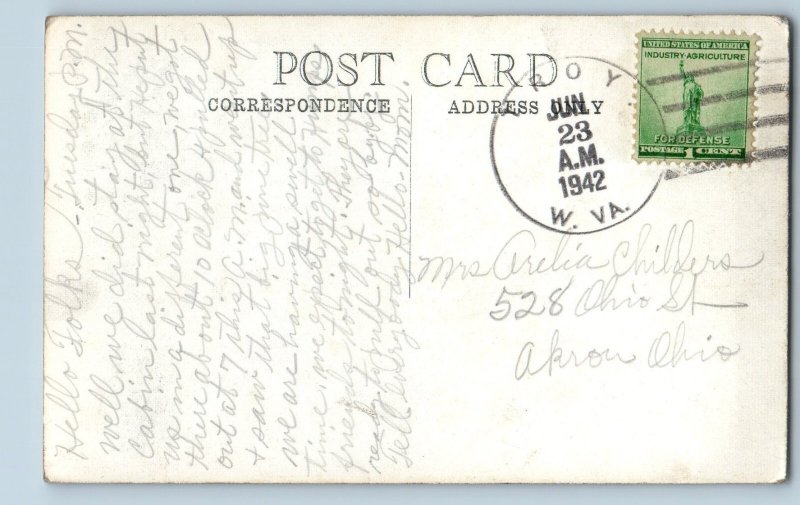 POST CARD
CORRESPONDENCE
ADDRESS ONLY
TROY.
JUN
23
A.M.
1942
W. VA.
UNITED STATES OF AMERICA
INDUSTRY-AGRICULTURE
FOR DEFENSE
POSTAGE 1 CENT
Mrs Arelia Childers
528 Ohio St
Akron Ohio
Hello Folks - Tuesday P.M.
well we did stay at the
cabin last night, don't
us in a different one, we got
there about 10 oclock & pulled
out at 7 this A.M. and went up
& saw that big
we are having a swell
time, we expect to get
friends tonight. They are
ready to pull out so bye
Tell everybody Hello - Mom.